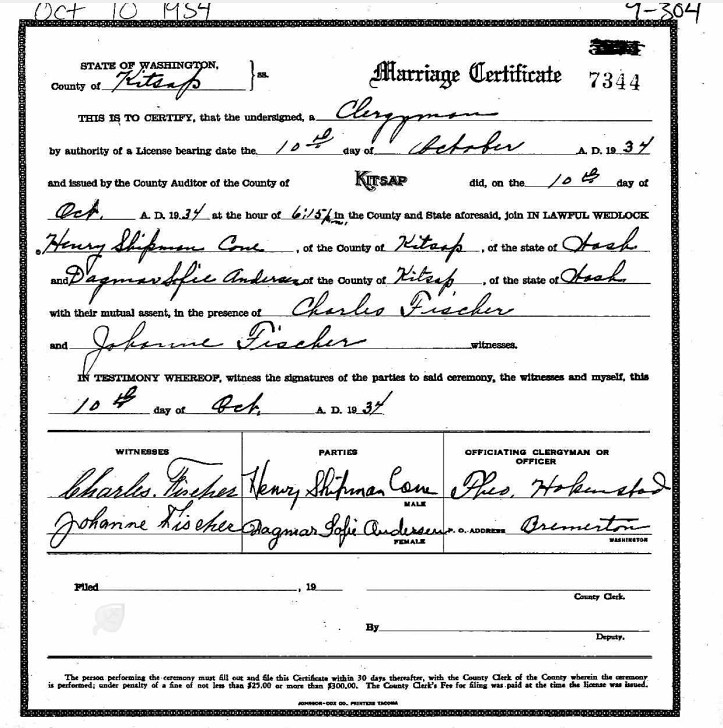 Oct 10 1934 9-304
STATE OF WASHINGTON, } ss.
County of Kitsap
Marriage Certificate 7344
THIS IS TO CERTIFY, that the undersigned, a Clergyman
by authority of a License bearing date the 10th day of October A. D. 19 34
and issued by the County Auditor of the County of KITSAP did, on the 10th day of
Oct. A. D. 19 34 at the hour of 6:15 p.m. in the County and State aforesaid, join IN LAWFUL WEDLOCK
Henry Shipman Cone, of the County of Kitsap, of the state of Wash
and Dagmar Sofie Andersen of the County of Kitsap, of the state of Wash
with their mutual assent, in the presence of Charles Fischer
and Johanne Fischer witnesses.
IN TESTIMONY WHEREOF, witness the signatures of the parties to said ceremony, the witnesses and myself, this
10th day of Oct. A. D. 19 34
WITNESSES PARTIES OFFICIATING CLERGYMAN OR OFFICER
Charles. Fischer Henry Shipman Cone Theo. Hokenstad
MALE
Johanne Fischer Dagmar Sofie Andersen P. O. ADDRESS Bremerton
FEMALE WASHINGTON
Filed , 19
County Clerk.
By
Deputy.
The person performing the ceremony must fill out and file this Certificate within 30 days thereafter, with the County Clerk of the County wherein the ceremony
is performed; under penalty of a fine of not less than $25.00 or more than $300.00. The County Clerk's Fee for filing was paid at the time the license was issued.
JOHNSON-COX CO. PRINTERS TACOMA